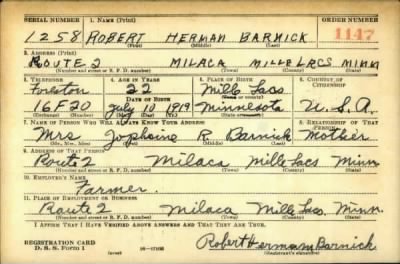 SERIAL NUMBER 1. NAME (Print) ORDER NUMBER
1258 ROBERT HERMAN BARNICK 1147
(First) (Middle) (Last)
2. ADDRESS (Print)
ROUTE 2 MILACA MILLE LACS MINN
(Number and street or R. F. D. number) (Town) (County) (State)
3. TELEPHONE 4. AGE IN YEARS 5. PLACE OF BIRTH 6. COUNTRY OF CITIZENSHIP
Foreston 22 Mille Lacs
DATE OF BIRTH (Town or county)
16F20 July 10 1919 Minnesota U.S.A.
(Exchange) (Number) (Mo.) (Day) (Yr.) (State or country)
7. NAME OF PERSON WHO WILL ALWAYS KNOW YOUR ADDRESS 8. RELATIONSHIP OF THAT PERSON
Mrs Jophoine R Barnick Mother
(Mr., Mrs., Miss) (First) (Middle) (Last)
9. ADDRESS OF THAT PERSON
Route 2 Milaca Mille Lacs Minn
(Number and street or R. F. D. number) (Town) (County) (State)
10. EMPLOYER'S NAME
Farmer.
11. PLACE OF EMPLOYMENT OR BUSINESS
Route 2 Milaca Mille Lacs. Minn.
(Number and street or R. F. D. number) (Town) (County) (State)
I AFFIRM THAT I HAVE VERIFIED ABOVE ANSWERS AND THAT THEY ARE TRUE.
REGISTRATION CARD
D. S. S. Form 1 (over) Robert Herman Barnick
(Registrant's signature)